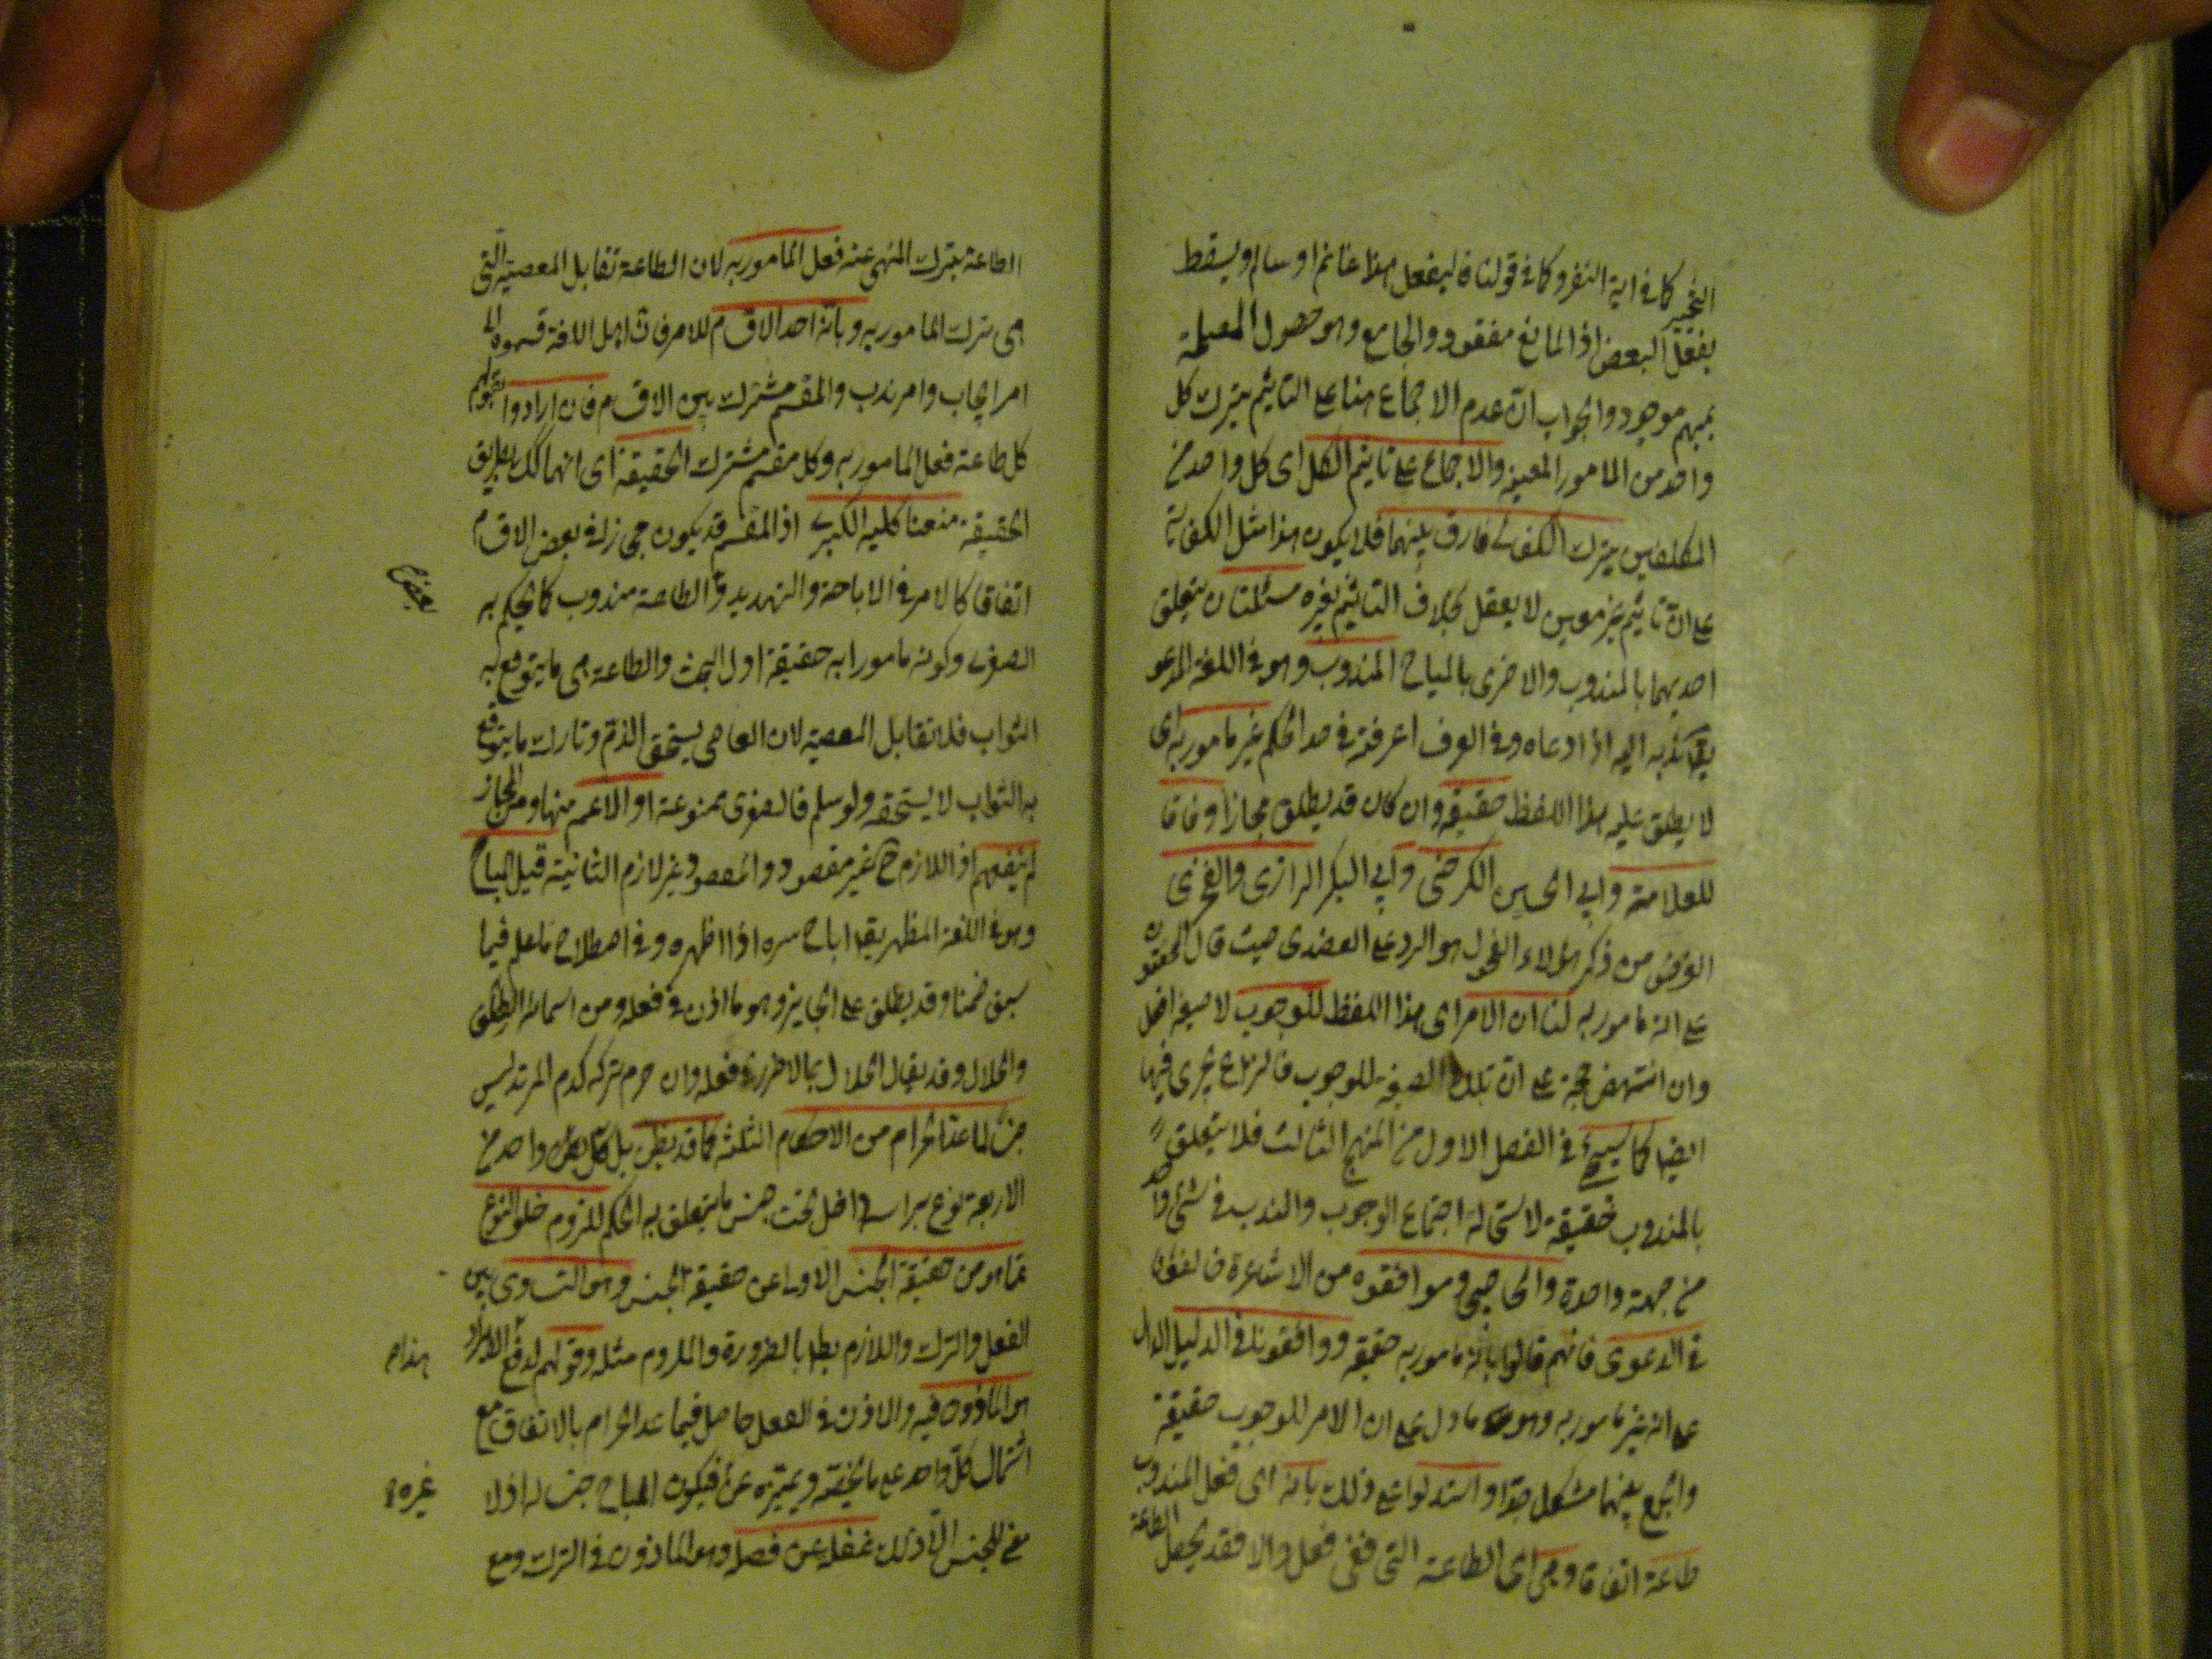 التخيير كما فى اية النفر وكما فى قولنا ة ليفعل هذا غانم او سالم ويسقط
بفعل البعض اذ المانع مفقود والجامع وهو حصول المصلحة
بمبهم موجود والجواب ان عدم الاجماع هنا على التاثيم بترك كل
واحد من المامور المعينه والاجماع على تاثيم الكل اى كل واحد من
المكلفين بترك الكفائى فارق بينهما فلا يكون هذا مثل الكفائى
على ان تاثيم غير معين لا يعقل بخلاف التاثيم بغيره مسئلتان يتعلق
احديهما بالمندوب والاخرى بالمباح المندوب وهو فى اللغة المدعو
يقال ندبه اليه اذا دعاه وفى العرف اعرفته فى حد الحكم غير مامور به اى
لا يطلق عليه هذا اللفظ حقيقة وان كان قد يطلق مجازا وفاقا
للعلامة وابى الحسين الكرخى وابى البكر الرازى والغرض
الغرض من ذكر هؤلاء الفحول هو الرد على العضدى حيث قال المحققون
على انه مامور به لنا ان الامر اى هذا اللفظ للوجوب لا صيغة افعل
وان انتهض حجة على ان تلك الصيغة للوجوب فالنزاع يجرى فيها
ايضا كما سيجئ فى الفصل الاول من المنهج الثالث فلا يتعلق
بالمندوب حقيقة لاستحالة اجتماع الوجوب والندب فى شئ واحد
من جهة واحدة والحاجبى وموافقوه من الاشاعرة خالفونا
فى الدعوى فانهم قالوا بانه مامور به حقيقة ووافقونا فى الدليل الدال
على انه غير مامور به وهو ما دل على ان الامر للوجوب حقيقة
والجمع بينهما مشكل جدا واستدلوا على ذلك بانه اى فعل المندوب
طاعة اتفاقا وهى اى الطاعة التى ففى فعل والا فقد يحصل الطاعة
الطاعة بترك المنهى عنه فعل المامور به لان الطاعة تقابل المعصية التى
هى ترك المامور به وبانه احد الاقسام للامر فان اهل اللغة قسموه الى
امر ايجاب وامر ندب والمقسم مشترك بين الاقسام فان ارادوا بقولهم
كل طاعة فعل المامور به وكل مقسم مشترك الحقيقة اى انهما كك بطريق
الحقيقة منعنا كلية الكبرى اذ المقسم قد يكون مجازا فى بعض الاقسام
اتفاقا كالامر فى الاباحة والتهديد والطاعة مندوب كما يحكم به
بعض
الصغرى وكونه مامورا به حقيقة اول البحث والطاعة هى ما يتوقع به
الثواب فلا تقابل المعصية لان العاصى يستحق الذم وتارك ما يتوقع
به الثواب لا يستحقه ولو سلم فالصغرى ممنوعة او الاعم منها ومن المجاز
لم ينفعهم اذ اللازم ح غير مقصود والمقصود غير لازم الثانية قيل المباح
وهو فى اللغة المظهر يقال اباح سره اذا اظهره وفى اصطلاح ما علم فيما
سبق ضمنا وقد يطلق على الجايز وهو ما اذن فى فعله ومن اسمائه الطلق
والحلال وقد يقال الحلال لما لا ضرر فى فعله وان حرم تركه كدم المرتد ليس
جنسا لما عدا الحرام من الاحكام الثلثة كما قد يظن بل كل واحد من
الاربعة نوع براسه داخل تحت جنس ما يتعلق به الحكم للزوم خلو النوع
عما هو من حقيقة الجنس الاولى عن حقيقة الجنس وهو التساوى بين
الفعل والترك واللازم بط بالضرورة والملزوم مثله وقولهم لدفع الايراد
هذا
هو الماذون فيه والاذن فى الفعل حاصل فيما عدا الحرام بالاتفاق مع
اشتمال كل واحد على ما يخصه ويميزه عن فيكون المباح جنسا له اذ لا
غيره
معنى للجنس الا ذلك غفلة عن فصله وهو الماذون فى الترك ومع